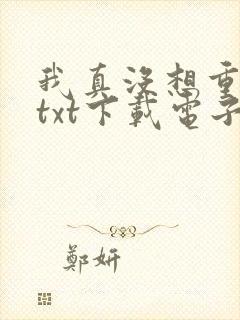 我真没想重
txt下載電子
鄭妍